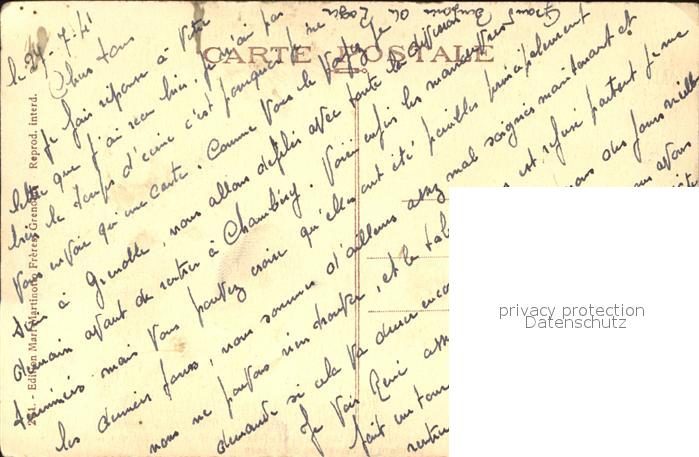 le 24-7-41
Chers tous
Je fais réponse à votre
lettre que j'ai reçu hier. Je n'ai pas
bien le temps d'écrire c'est pourquoi je ne
vous envoie qu'une carte. Comme vous le voyez je
suis à Grenoble, nous allons défiler avec toute la division
demain avant de rentrer à Chambéry. Voici enfin les manoeuvres
terminées mais vous pouvez croire qu'elles ont été pénibles principalement
les derniers jours, nous sommes d'ailleurs assez mal soignés maintenant et
nous ne pouvons rien trouver, et le tab est refusé partout je me
demande si cela va durer enco des jours
Je vois René ass vous
fait un tour
rentre
Grand
CARTE POSTALE
Edition Mars Martinotto Frères, Grenoble Reprod. interd.
privacy protection
Datenschutz